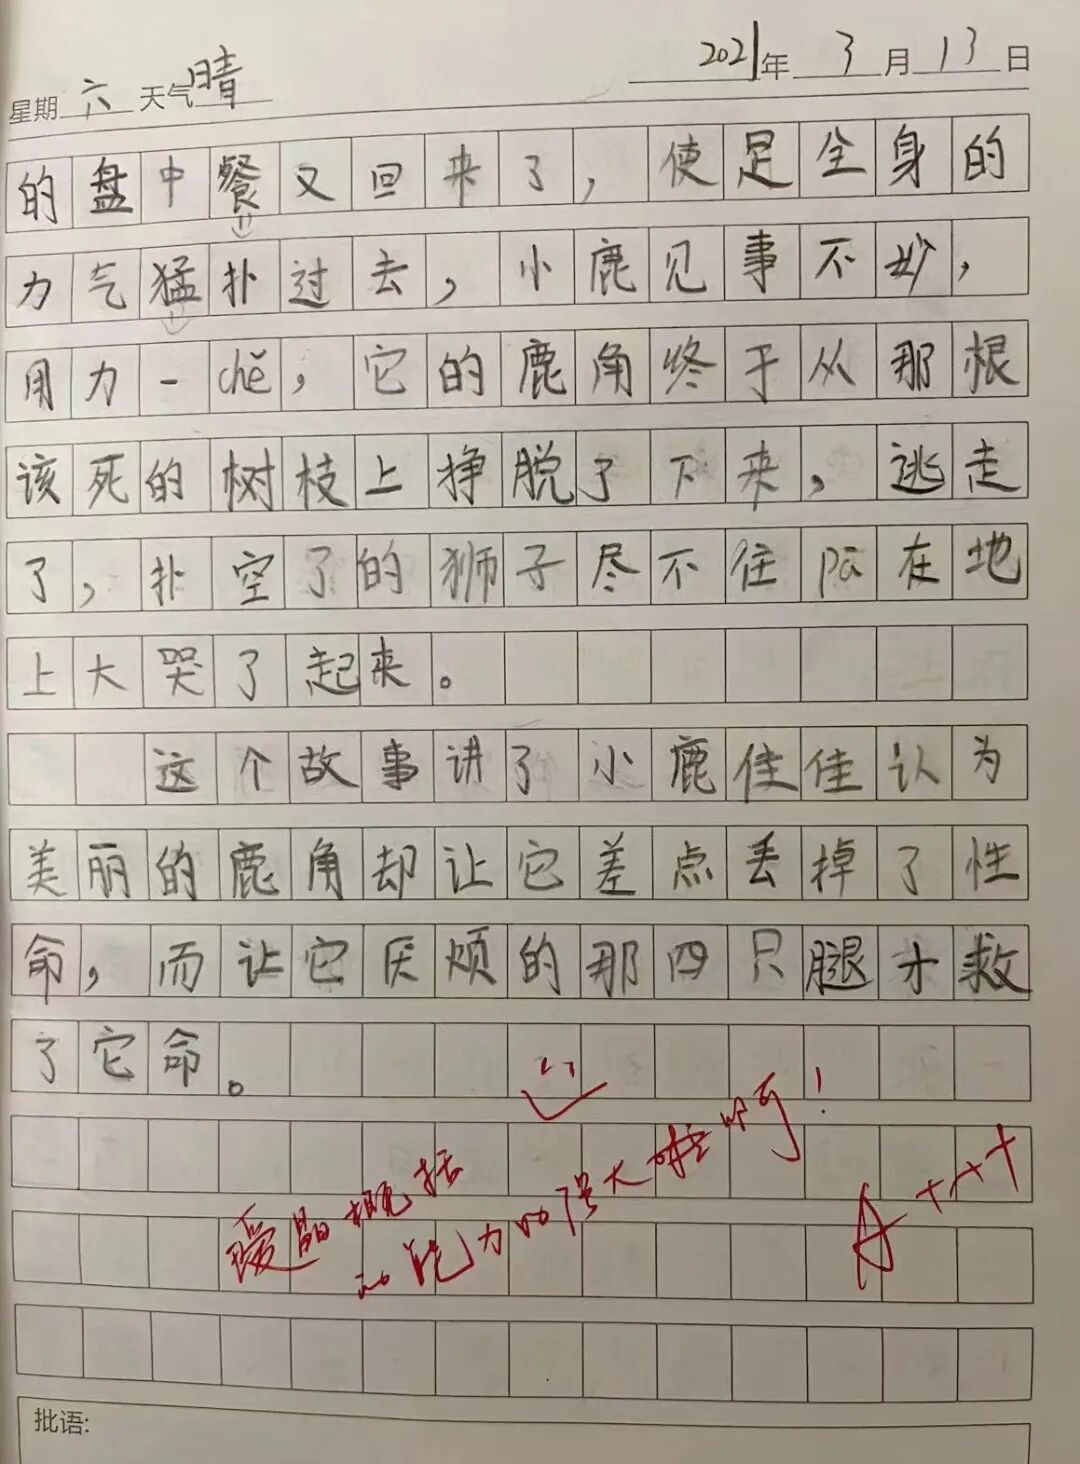 2021年3月13日
星期六 天气晴
的盘中餐又回来了，使足全身的
力气猛扑过去，小鹿见事不妙，
用力一chě，它的鹿角终于从那根
该死的树枝上挣脱了下来，逃走
了，扑空了的狮子尽不住pā在地
上大哭了起来。
这个故事讲了小鹿佳佳认为
美丽的鹿角却让它差点丢掉了性
命，而让它厌烦的那四只腿才救
了它命。
概括
能力 强大 啊！
A+++
批语: